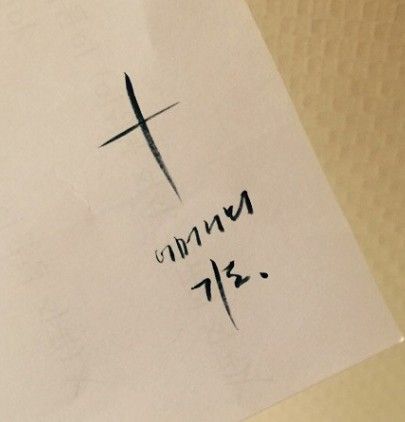 어머니의
기도.